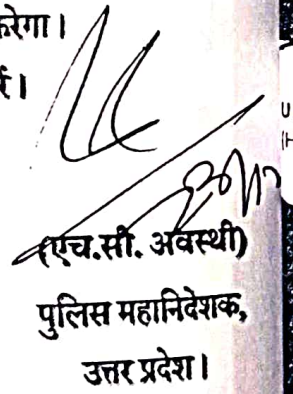 करेगा।
(एच.सी. अवस्थी)
पुलिस महानिदेशक,
उत्तर प्रदेश।